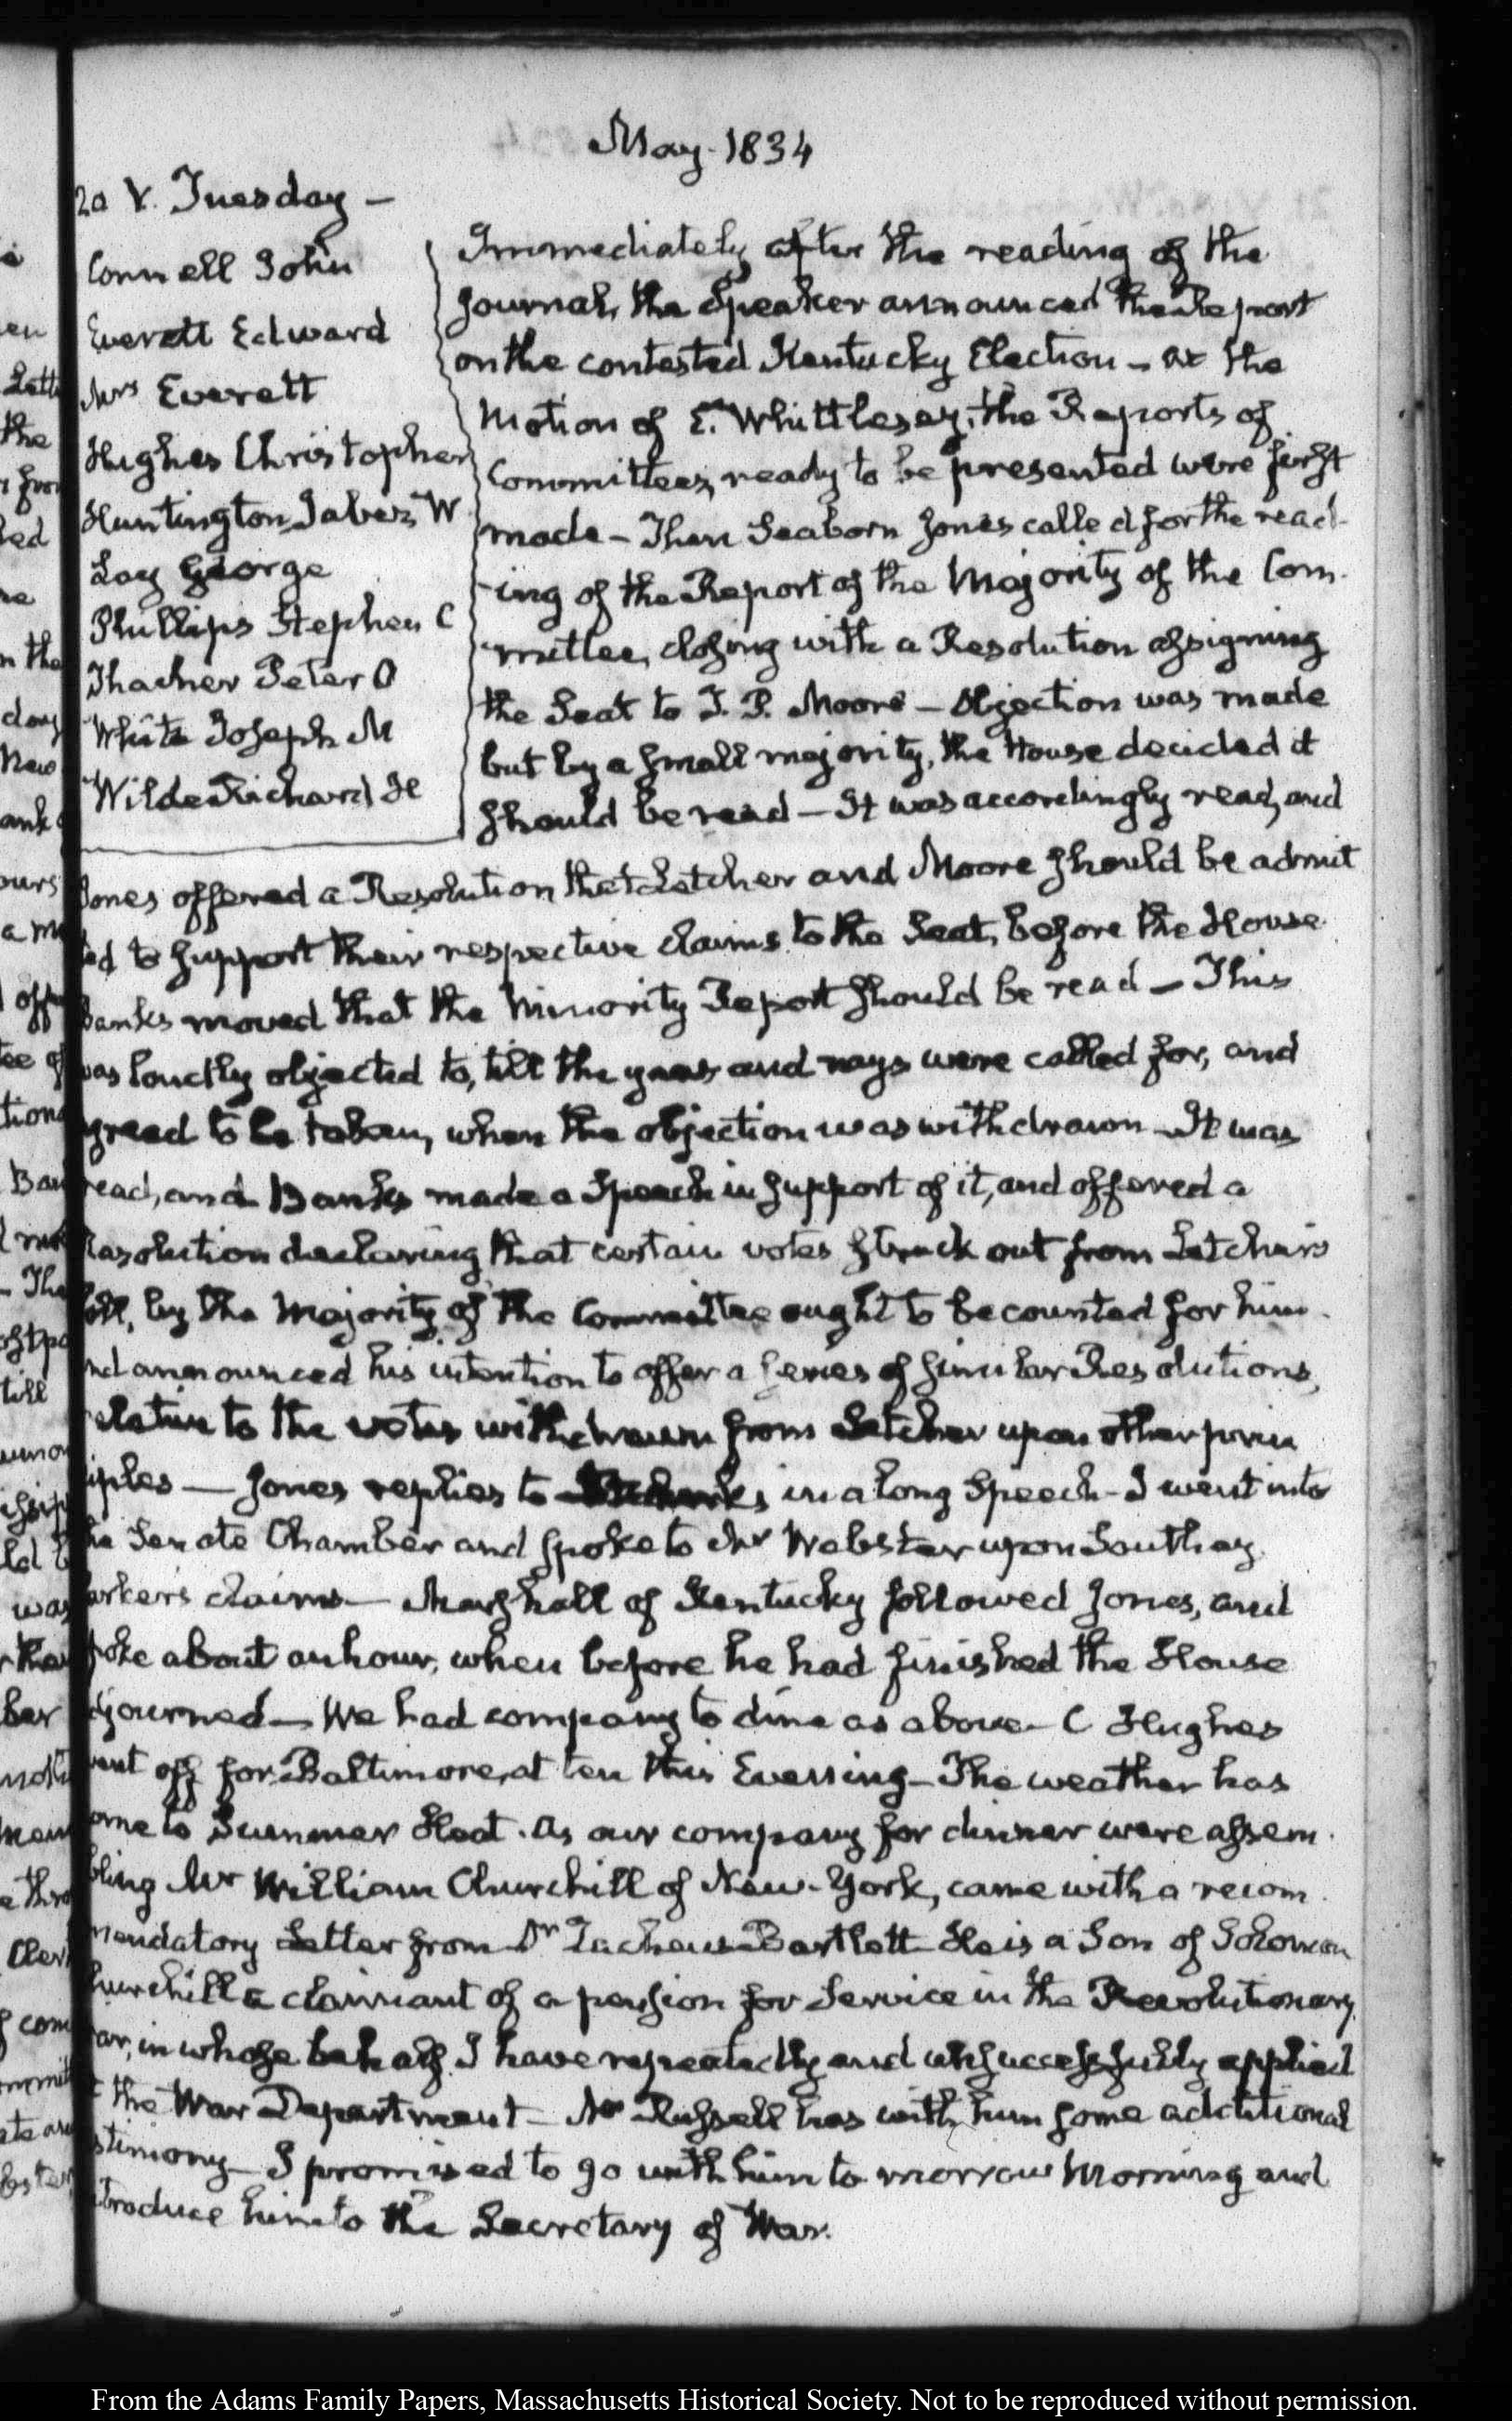 May. 1834
20 V. Tuesday –
Connell John
Everett Edward
Mrs Everett
Hughes Christopher
Huntington Jabez W
Lay George
Phillips Stephen C
Thacher Peter O
White Joseph M
Wilde Richard H
Immediately after the reading of the
Journal, the Speaker announced the Report
on the contested Kentucky Election – at the
motion of E. Whittlesey, the Reports of
Committees, ready to be presented were first
made – Then Seaborn Jones called for the read-
ing of the Report of the Majority of the Com-
mittee, closing with a Resolution assigning
the Seat to T. P. Moore – Objection was made
but by a small majority, the House decided it
should be read – It was accordingly read, and
Jones offered a Resolution that Letcher and Moore should be admit
ted to support their respective claims to the Seat, before the House
Banks moved that the Minority Report should be read – This
was loudly objected to, till the yeas and nays were called for, and
agreed to be taken, when the objection was withdrawn – It was
read, and Banks made a Speech in support of it, and offered a
Resolution declaring that certain votes struck out from Letcher's
poll, by the Majority of the Committee ought to be counted for him
and announced his intention to offer a series of similar Resolutions,
relative to the votes withdrawn from Letcher upon other prin
ciples — Jones replies to Banks in a long Speech – I went into
the Senate Chamber and spoke to Mr Webster upon Southey
Parker's claims – Marshall of Kentucky followed Jones, and
spoke about an hour, when before he had finished the House
adjourned – We had company to dine as above – C Hughes
went off for Baltimore, at ten this Evening – The weather has
come to Summer Heat. As our company for dinner were assem-
bling Mr William Churchill of New-York, came with a recom-
mendatory Letter from Dr Zacheus Bartlett He is a Son of Solomon
Churchill a claimant of a pension for Service in the Revolutionary
War, in whose behalf I have repeatedly and unsuccessfully applied
at the War Department – Mr Russell has with him some additional
testimony – I promised to go with him to morrow Morning and
introduce him to the Secretary of War.
From the Adams Family Papers, Massachusetts Historical Society. Not to be reproduced without permission.